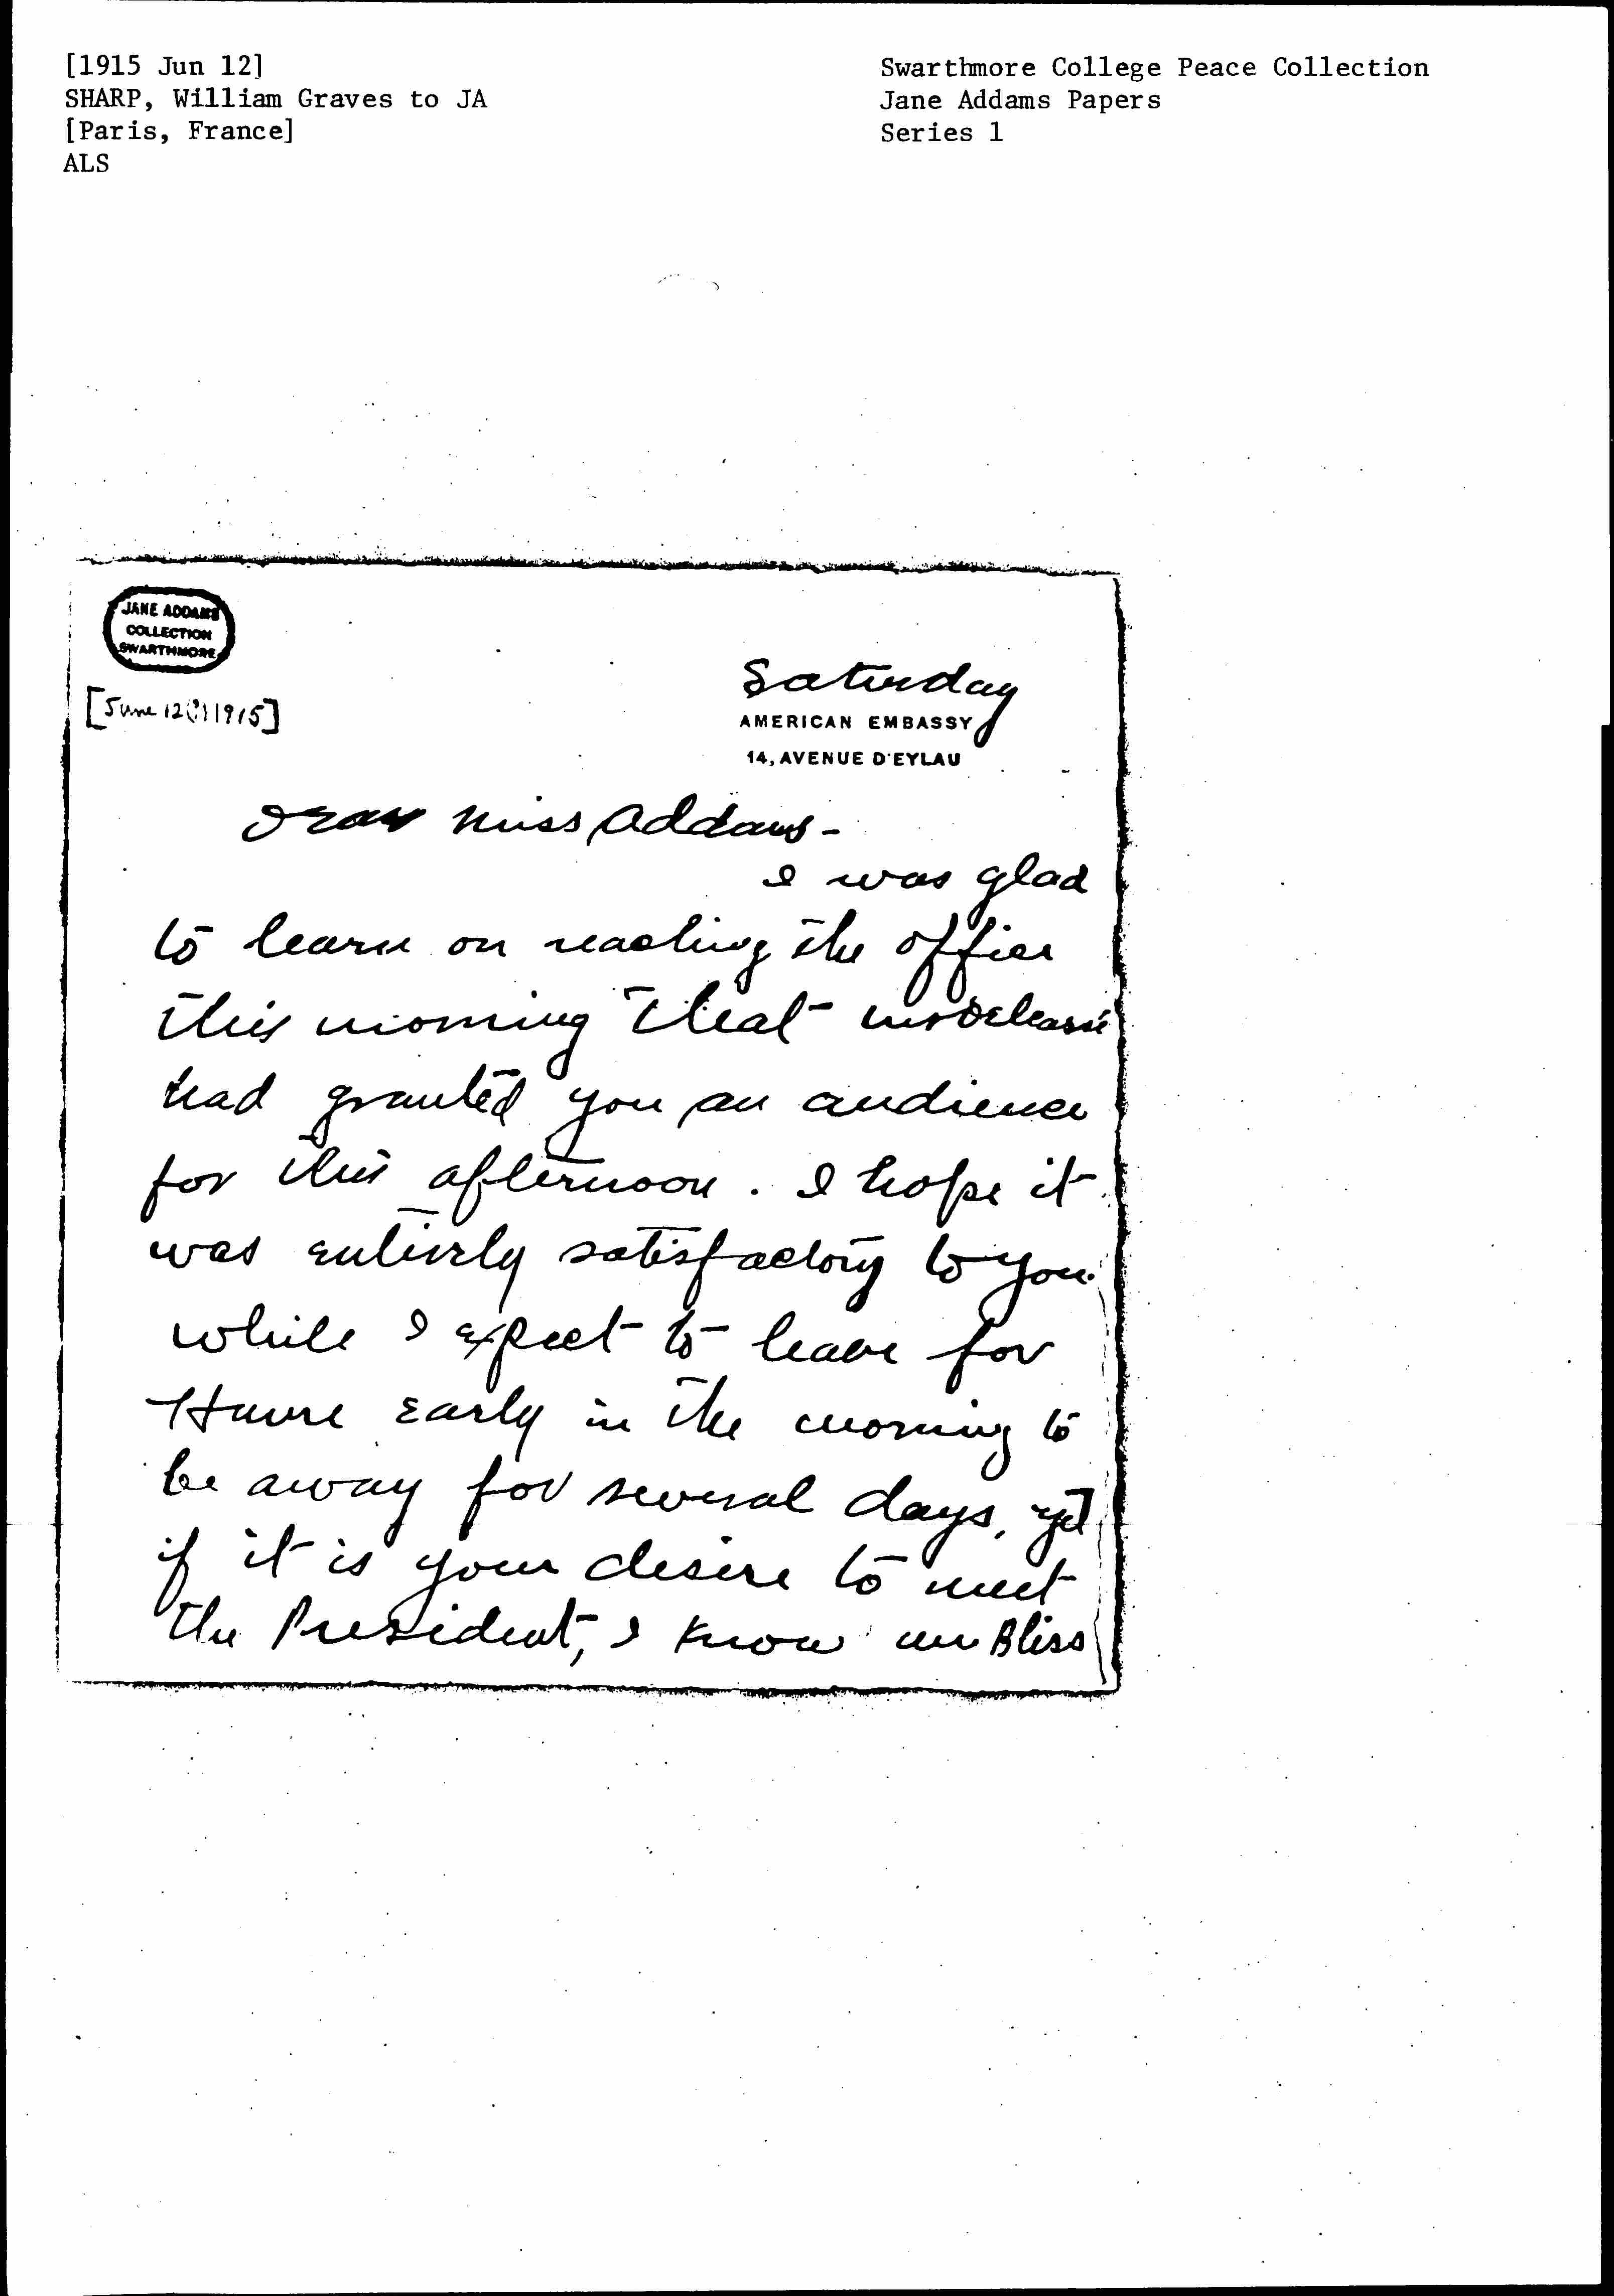 [1915 Jun 12]
SHARP, William Graves to JA
[Paris, France]
ALS
Swarthmore College Peace Collection
Jane Addams Papers
Series 1
JANE ADDAMS
COLLECTION
SWARTHMORE
[June 12(?) 1915]
Saturday
AMERICAN EMBASSY
14, AVENUE D'EYLAU
Dear Miss Addams -
I was glad
to learn on reaching the office
this morning that M Delcassé
had granted you an audience
for this afternoon. I hope it
was entirely satisfactory to you.
While I expect to leave for
Havre early in the morning to
be away for several days, yet
if it is your desire to meet
the President, I know Mr Bliss